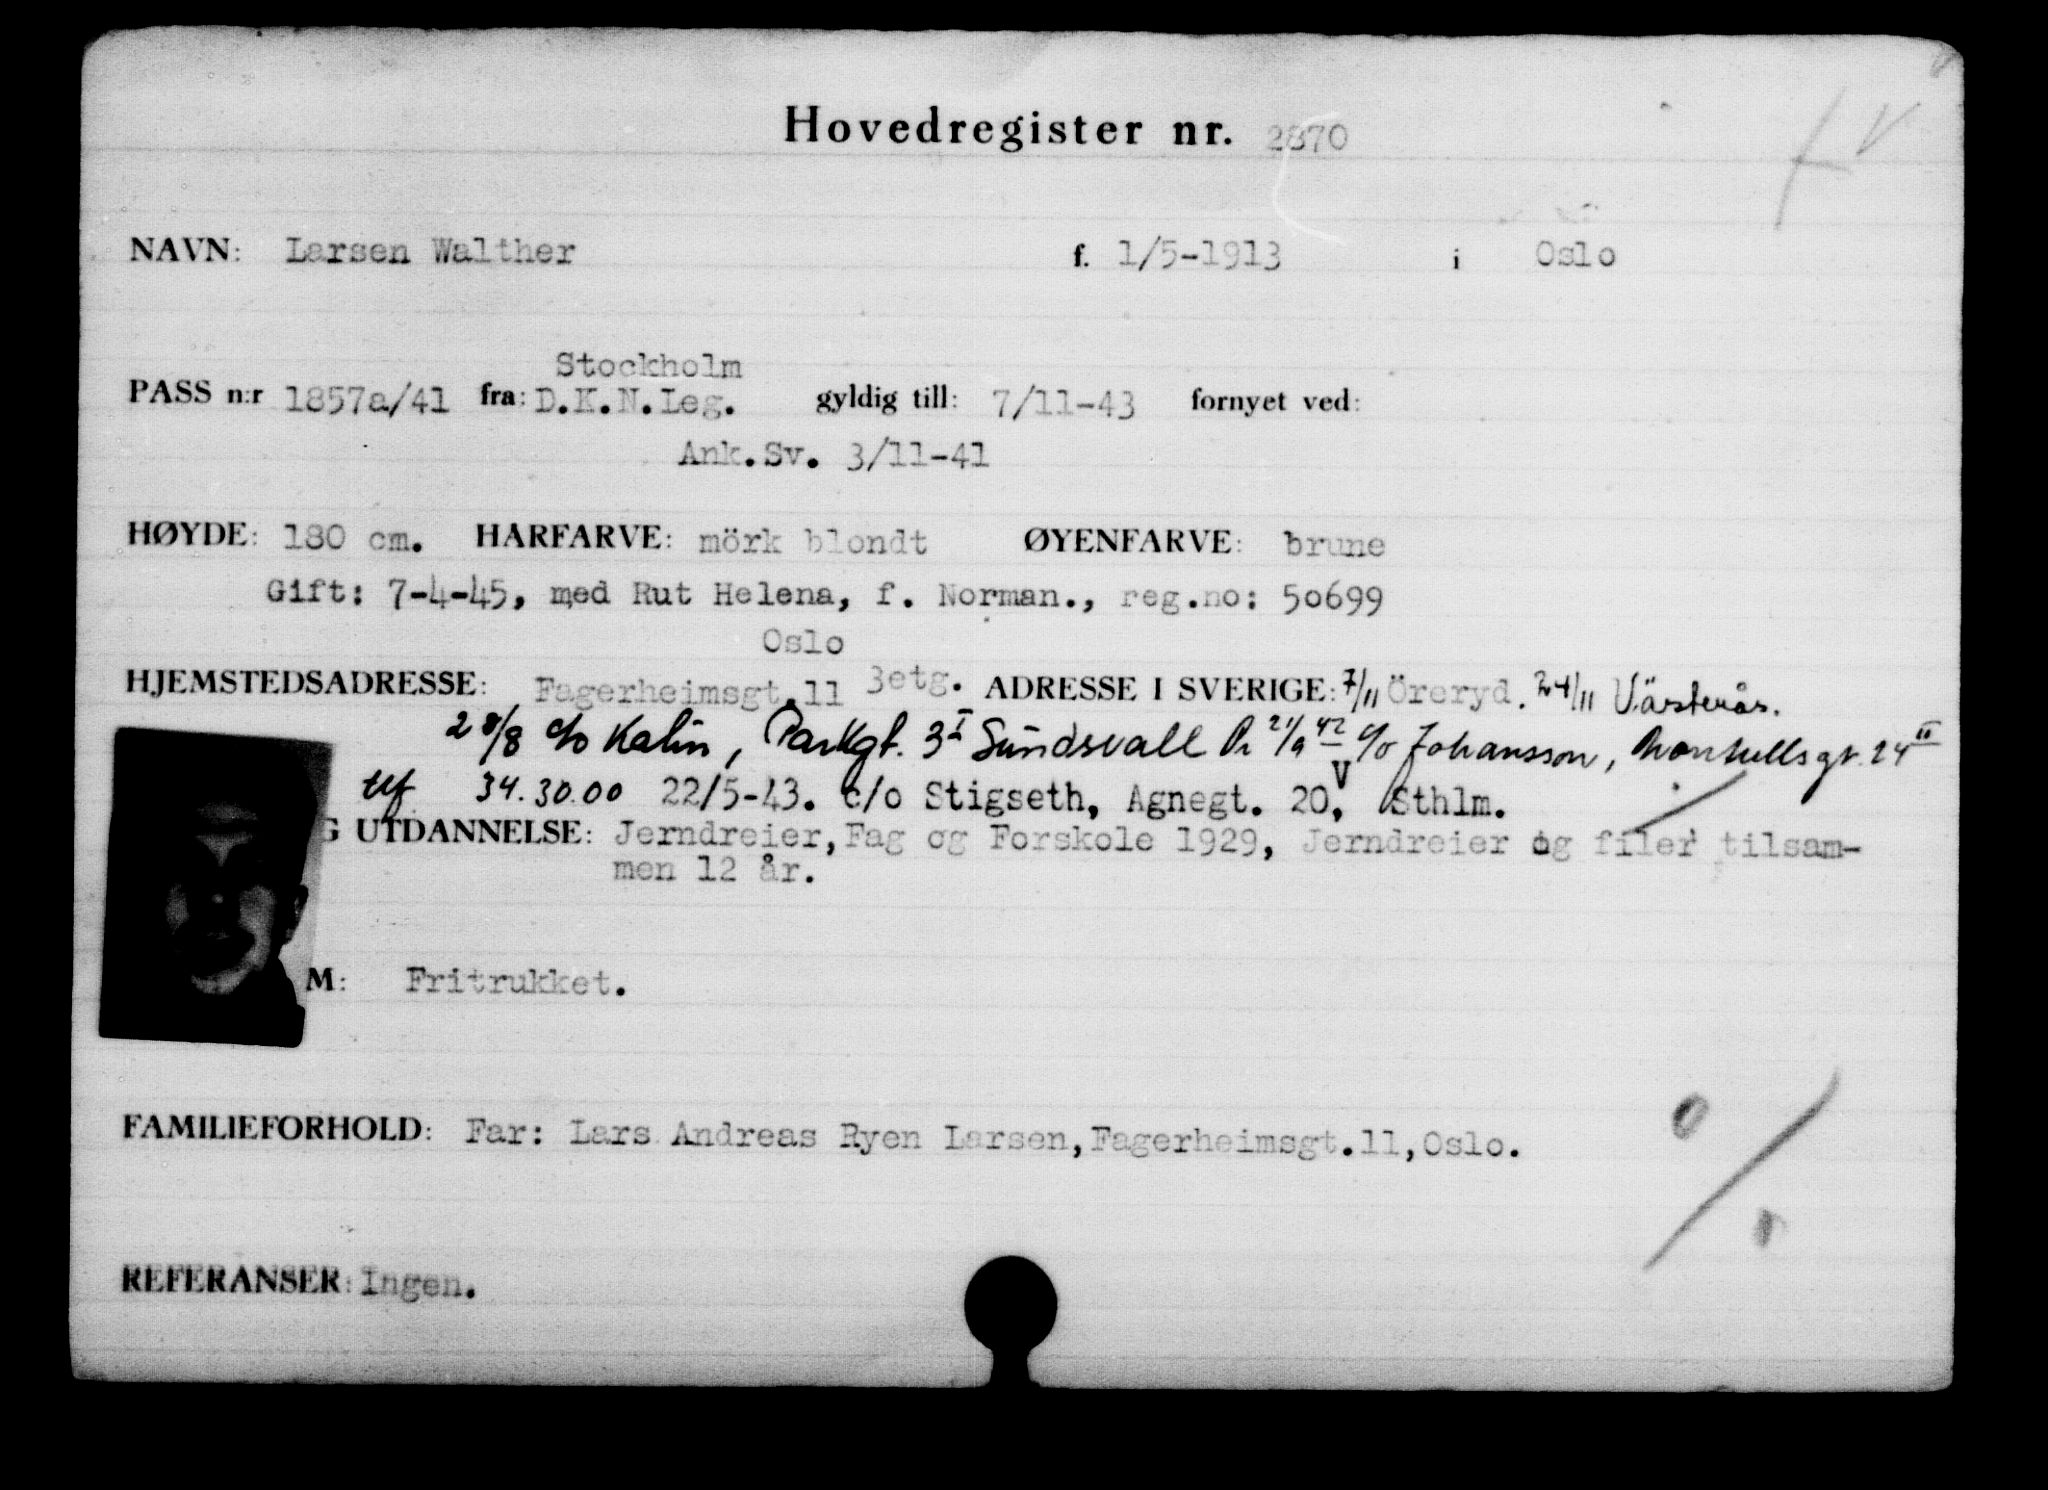 Hovedregister nr. 2870
NAVN: Larsen Walther f. 1/5-1913 i Oslo
Stockholm
PASS n:r 1857a/41 fra: D.K.N.Leg. gyldig till: 7/11-43 fornyet ved:
Ank.Sv. 3/11-41
HØYDE: 180 cm. HARFARVE: mörk blondt ØYENFARVE: brune
Gift: 7-4-45, med Rut Helena, f. Norman., reg.no: 50699
Oslo
HJEMSTEDSADRESSE: Fagerheimsgt.11 3etg. ADRESSE I SVERIGE: 7/11 Öreryd. 24/11 Västerås.
28/8 c/o Kalin, Parkgt. 3 I Sundsvall 21/9 42 c/o Johansson, 24 II
tlf 34.30.00 22/5-43. c/o Stigseth, Agnegt. 20, V Sthlm.
G UTDANNELSE: Jerndreier, Fag og Forskole 1929, Jerndreier og filer tilsam-
men 12 år.
M: Fritrukket.
FAMILIEFORHOLD: Far: Lars Andreas Ryen Larsen, Fagerheimsgt.11, Oslo.
REFERANSER: Ingen.